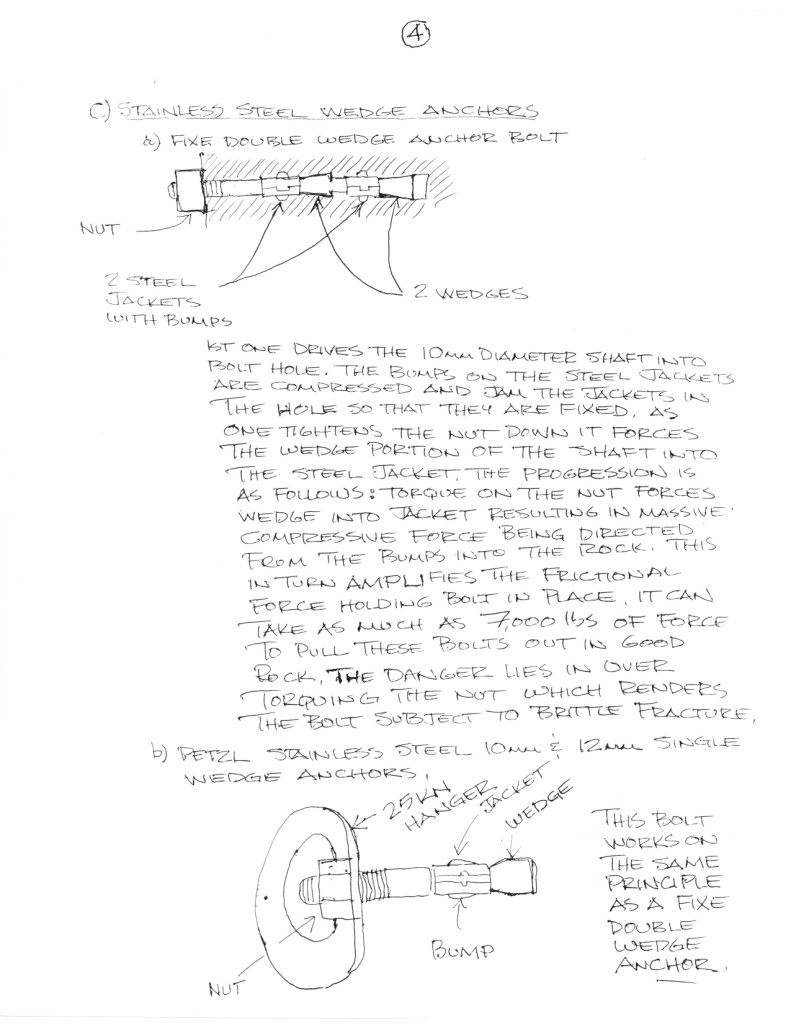 4
C) STAINLESS STEEL WEDGE ANCHORS
a) FIXE DOUBLE WEDGE ANCHOR BOLT
NUT
2 STEEL
JACKETS
WITH BUMPS
2 WEDGES
1ST ONE DRIVES THE 10mm DIAMETER SHAFT INTO
BOLT HOLE. THE BUMPS ON THE STEEL JACKETS
ARE COMPRESSED AND JAM THE JACKETS IN
THE HOLE SO THAT THEY ARE FIXED. AS
ONE TIGHTENS THE NUT DOWN IT FORCES
THE WEDGE PORTION OF THE SHAFT INTO
THE STEEL JACKET. THE PROGRESSION IS
AS FOLLOWS: TORQUE ON THE NUT FORCES
WEDGE INTO JACKET RESULTING IN MASSIVE
COMPRESSIVE FORCE BEING DIRECTED
FROM THE BUMPS INTO THE ROCK. THIS
IN TURN AMPLIFIES THE FRICTIONAL
FORCE HOLDING BOLT IN PLACE. IT CAN
TAKE AS MUCH AS 7,000 lbs OF FORCE
TO PULL THESE BOLTS OUT IN GOOD
ROCK. THE DANGER LIES IN OVER
TORQUING THE NUT WHICH RENDERS
THE BOLT SUBJECT TO BRITTLE FRACTURE.
b) PETZL STAINLESS STEEL 10mm & 12mm SINGLE
WEDGE ANCHORS.
25KN
HANGER
JACKET
WEDGE
BUMP
NUT
THIS BOLT
WORKS ON
THE SAME
PRINCIPLE
AS A FIXE
DOUBLE
WEDGE
ANCHOR.